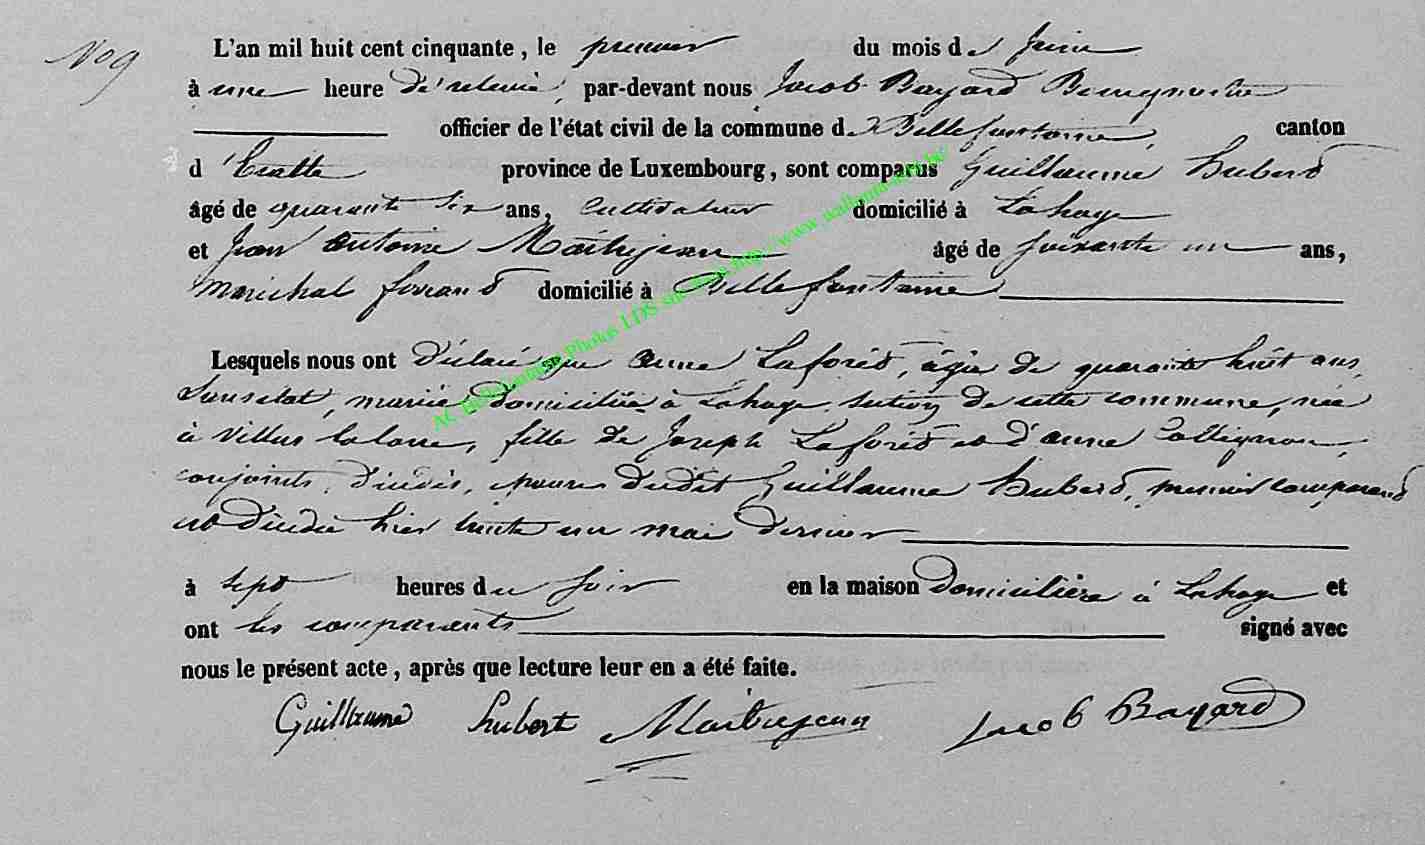 No 9
L'an mil huit cent cinquante, le premier du mois de Juin
à une heure de relevée, par-devant nous Jacob Bayard Bourgmestre
officier de l'état civil de la commune de Bellefontaine, canton
d'Etalle province de Luxembourg, sont comparus Guillaume Hubert
âgé de quarante six ans, cultivateur domicilié à Lahage
et Jean Antoine Maitrejean âgé de soixante un ans,
Maréchal ferrand domicilié à Bellefontaine
Lesquels nous ont déclaré que Anne Laforêt, âgée de quarante huit ans,
sans état, mariée, domiciliée à Lahage, section de cette commune, née
à Villers la loue, fille de Joseph Laforêt et d'anne Collignon,
conjoints, décédés, épouse dudit Guillaume Hubert, premier comparant
est décédée hier trente un mai dernier
à sept heures du soir en la maison domicilière à Lahage et
ont les comparants signé avec
nous le présent acte, après que lecture leur en a été faite.
Guillaume Hubert Maitrejean Jacob Bayard
AC Bellefontaine Photos LDS sur http://www.wallonia-asbl.be/